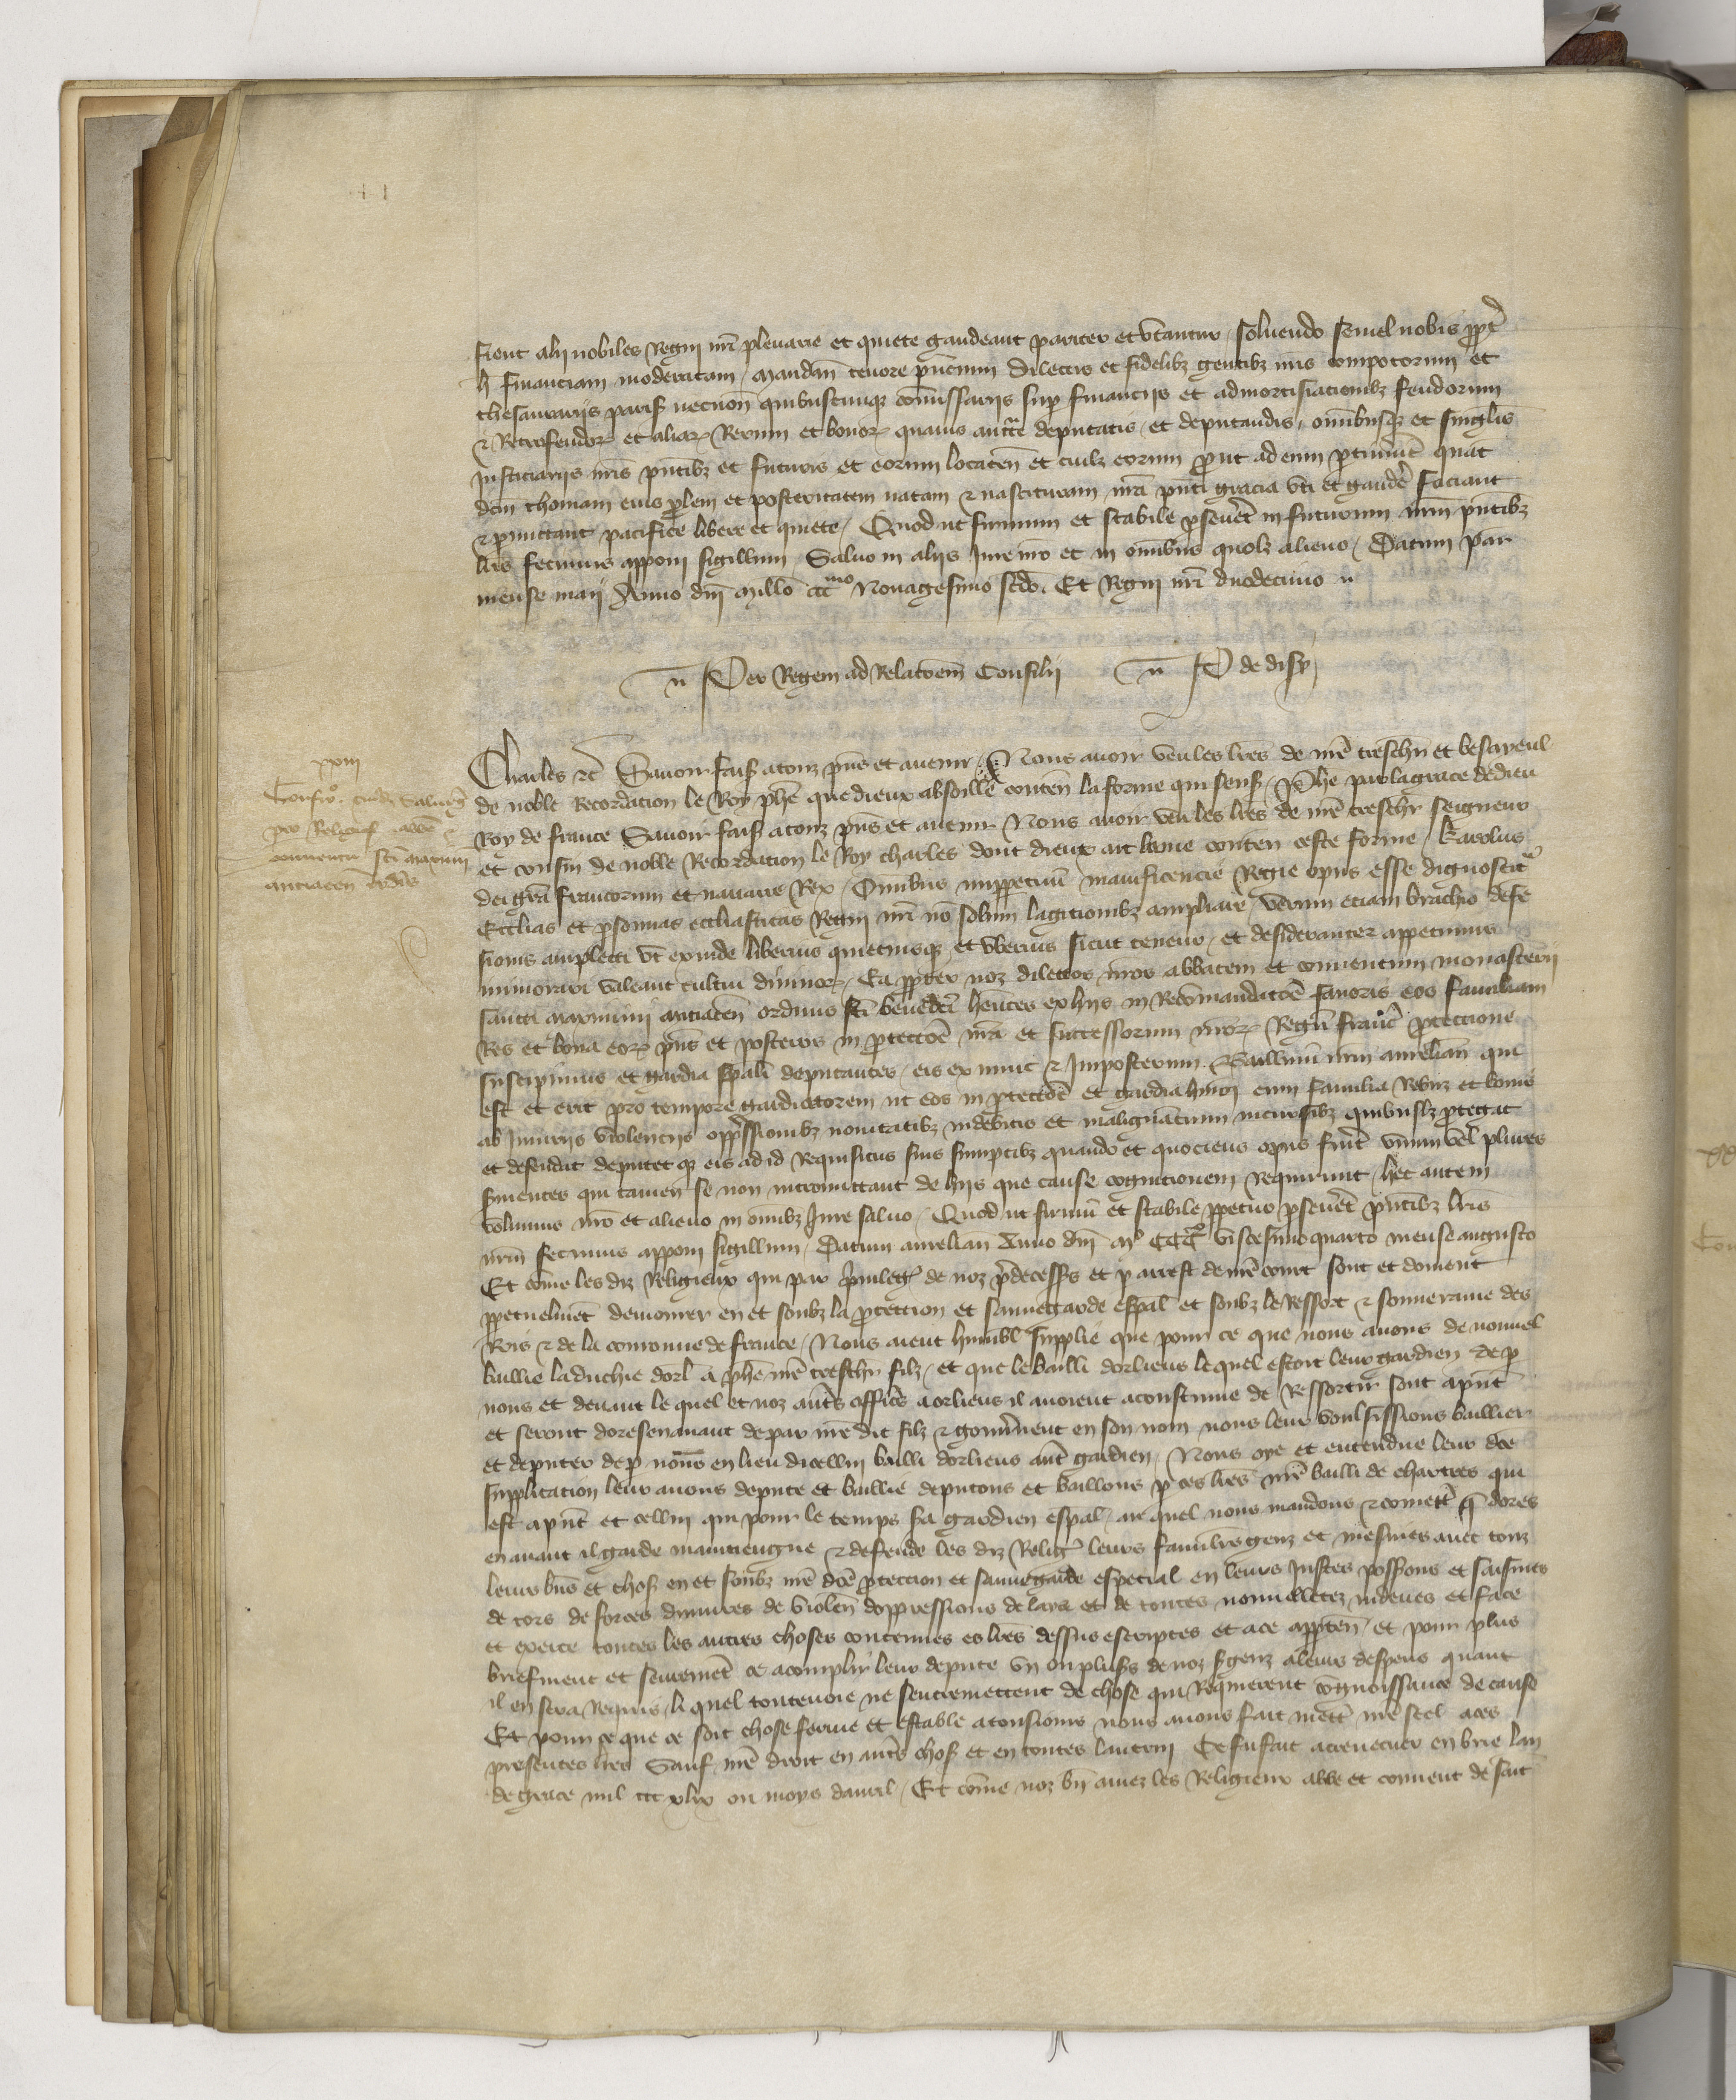 sicut alij nobiles Regni nr̄i plenarie et quiete gaudeant pariter et vtantur soluendo semel nobis ꝓpt̄
h̄ financiam moderatam mandan̄ tenore pn̄cium dilectis et fidelibꝫ gentibꝫ nr̄is compotorum et
thesaurarijs paris necnon quibuscunqꝫ com̄issarijs suꝑ financijs et admortisacionibꝫ feudorum
⁊ Retrofeudoꝝ et aliaꝝ Rerum et bonoꝝ quauis auct̄te deputatis et deputandis om̄ibusqꝫ et singl̄is
Justiciarijs nr̄is pn̄tibꝫ et futuris et eorum locaten̄ et cuilꝫ eorum ꝓut ad eum ꝑtinuer̄ quat̄
dc̄m thomam eius ꝓlem et posteritatem natam ⁊ nascituram nr̄a pn̄ti gracia vti et gauder̄ faciant
⁊ ꝑmittant pacifice libere et quiete Quod ut firmum et stabile ꝑseuer̄et in futurum nr̄m pn̄tibꝫ
lr̄is fecimus apponi sigillum Saluo in alijs Jure nr̄o et in om̄ibus quolꝫ alieno Datum par̄
mense maij Anno dn̄i millo ccc mo Nonagesimo scd̄o. Et Regni nr̄i duodecimo
Per Regem ad Relac̄oem Consilij P de disy
xxiii
Confir̄o. cuiusd̄ saluegᵉ
pro Religios̄ abbē ⁊
conuentu sc̄i maximini
miciacen̄ ordīs
Charles ⁊c̄ Sauoir fais̄ a touz pn̄s et auenir Nous auoir veu les lr̄es de nr̄e trescħ et besayeul
de noble Recordacion le Roy phē que dieux absoille conten̄ la forme qui sens̄ Phē par la grace de dieu
Roy de france Sauoir fais̄ a touz pn̄s et auenir Nous auoir veu les lr̄es de nr̄e trescħr seigneur
et cousin de noble Recordacion le Roy charles dont dieux ait lame conten̄ ceste forme Karolus
dei gr̄a francorum et nauarre Rex Om̄ibus imꝑpetuū maificencie Regie opus esse dignoscit̄
Ecclias et ꝑsonas ecclīasticas Regni nr̄i nō solum lagicionibꝫ ampliare verum eciam brachio defē
sionis amplecti vt exinde liberius quieciusqꝫ et vberius sicut tenent̄ et desideranter appetimus
immorari valeant cultui diuinoꝝ Ea ꝓpter noꝫ dilectos nr̄os abbatem et conuentum monasterij
sancti maximini miciacen̄ ordinis sc̄i benedc̄i hentes ex hijs in Recōmandac̄oē fauoris eos familiam
Res et bona eoꝝ pn̄s et posteros in ꝓtecc̄oē nr̄a et successorum nr̄oꝝ Regū franc̄ ꝓteccione
suscipimus et gardia spāli deputantes eis ex nunc ⁊ Imposterum Bailliuū nr̄m aurelian̄ qui
est et erit pro tempore gardiatorem ut eos in ꝓtecc̄oē et gardia hmōi cum familia Rebꝫ et bonis
ab iniurijs violencijs oppressionibꝫ nouitatibꝫ indebitis et malignācium incursibꝫ quibuslꝫ ꝓtegat
et defendat deputet qꝫ eis ad id Requisitus suis sumptibꝫ quando et quociens opus fuerit vnum vel plures
s̄uientes qui tamen se non intromittant de hijs que cause cognicionem Requirunt hec autem
volumus nr̄o et alieno in om̄ibꝫ Jure saluo Quod ut firmū et stabile ꝑpetuo ꝑseueret pn̄tibꝫ lr̄is
nr̄m fecimus apponi sigillum Datum aurelian̄ Anno dn̄i mº CCCº vicesimo quarto mense augusto
Et cōme les dꝫ Religieux qui par priuileḡ de noz p̄decess̄rs et ꝑ arrest de nr̄e court sont et doiuent
ꝑpetuelmēt demourer en et soubz la ꝓteccion et sauuegarde esp̄al et soubz le Ressort ⁊ souueraine des
Rois ⁊ de la couronne de france Nous aient humbl̄ supplie que pour ce que nous auons de nouuel
baillie la duchie dorl̄ a phē nr̄e trescħr filz et que le bailli dorliens le quel estoit leur gardien de ꝑ
nous et deuant le quel et noz autꝰs offic̄rs a orliens il auoient acoustume de Ressortir sont apn̄t
et seront doresenauant de par nr̄e dit filz ⁊ gouuernent en son nom nous leur voulsissions baillier
et deputer de ꝑ nous en lieu dicellui bailli dorliens aut̄ gardien Nous oye et entendue leur dc̄e
supplicacion leur auons depute et baillie deputons et baillons ꝑ ces lr̄es nr̄e bailli de chartres qui
est apn̄t et cellui qui pour le temps sa gardien esp̄al au quel nous mandons ⁊ comett̄ qͤ dores
en auant il garde maintiengne ⁊ defende les dꝫ Reliḡ leurs familiers genz et mesnies auec touz
leurs biēs et chos̄ en et soubz nr̄e dc̄e ꝓteccion et sauuegarde especial en leurs Justes poss̄ions et saisines
de tors de forces diniures de violen̄ doppressions de lays et de toutes nouuelletez indeues et face
et exerce toutes les autres choses contenues es lr̄es dessus escriptes et a ce apꝑten̄ et pour plus
briefment et seurement ce acomplir leur depute vn ou plus̄rs de noz s̄genz a leurs despens quant
il en sera Requis li quel touteuoie ne sentremettent de chose qui Requierent cognoissance de cause
Et pour ce que ce soit chose ferme et estable a tousiours nous auons fait mettre nr̄e seel a ces
presentes lr̄es Sauf nr̄e droit en autꝰs chos̄ et en toutes lautrui Ce fu fait a creuecuer en brie lan
de grace mil ccc xlv ou moys dauril Et cōme noz bn̄ amez les Religieux abbe et couuent de sait